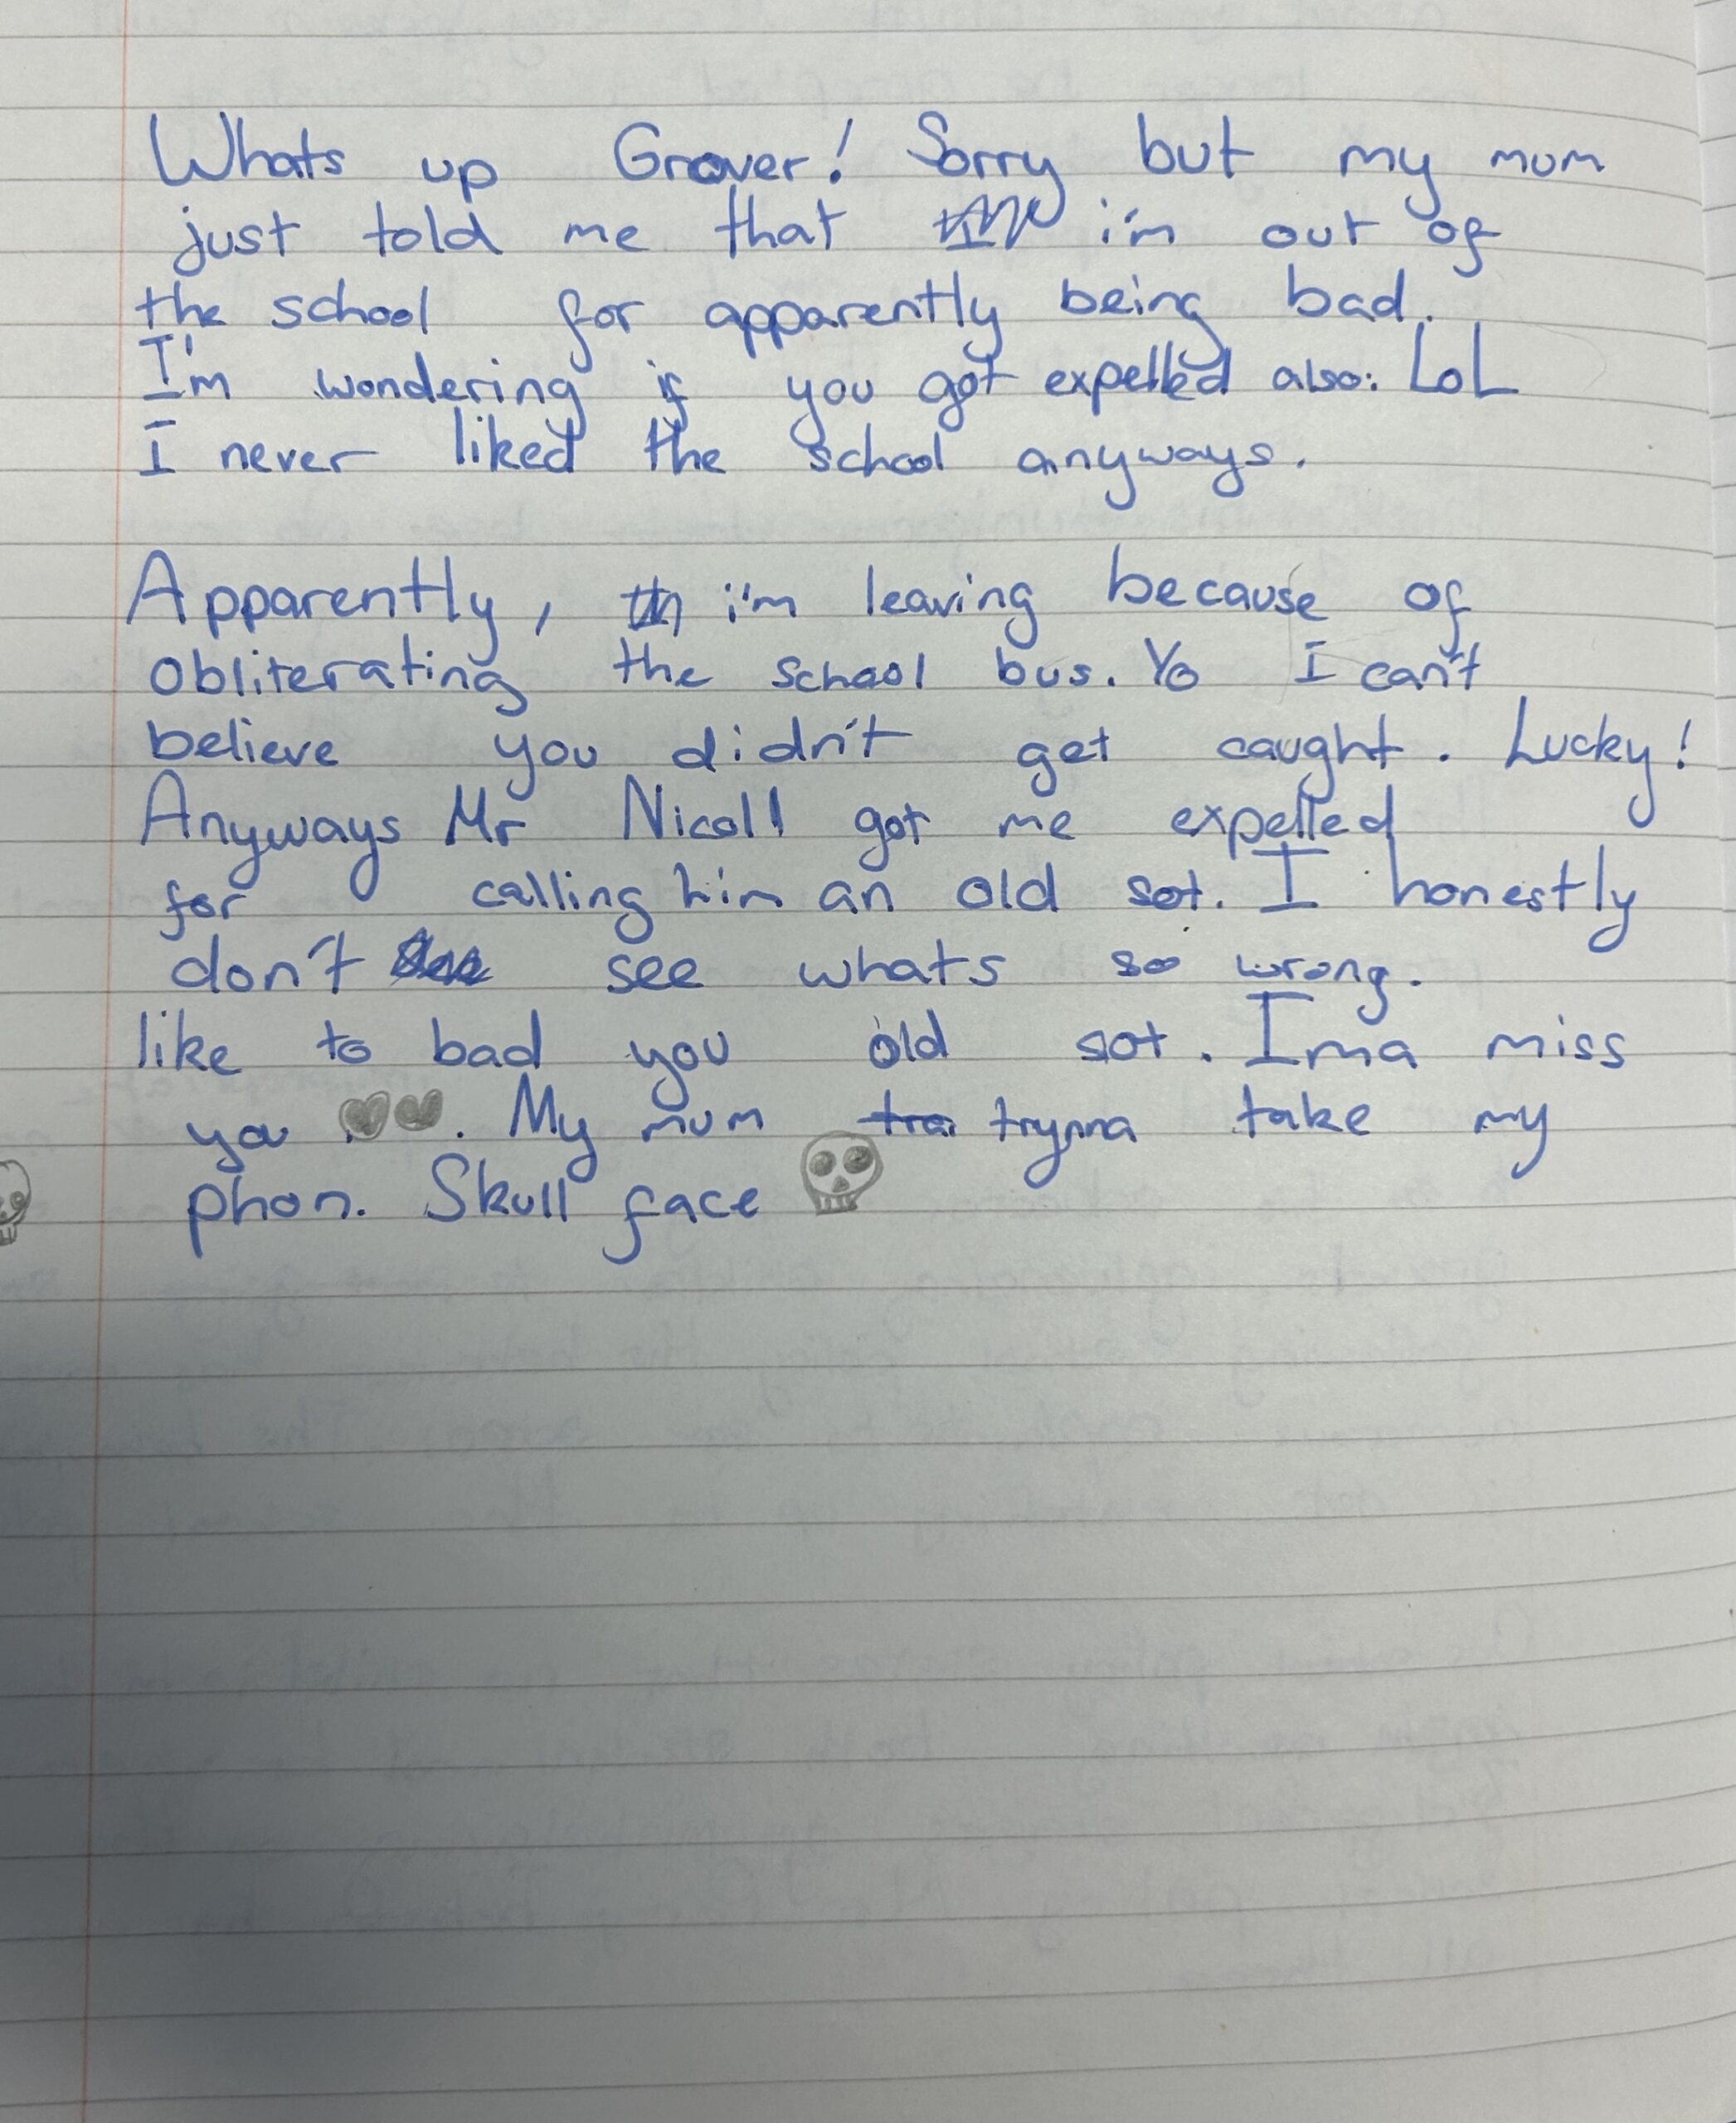 Whats up Grover! Sorry but my mum
just told me that i'm out of
the school for apparently being bad.
I'm wondering if you got expelled also: LoL
I never liked the school anyways.
Apparently, i'm leaving because of
obliterating the school bus. Yo I can't
believe you didn't get caught. Lucky!
Anyways Mr Nicoll got me expelled
for calling him an old sot. I honestly
don't see whats so wrong.
like to bad you old sot. Ima miss
you. My mum trynna take my
phon. Skull face